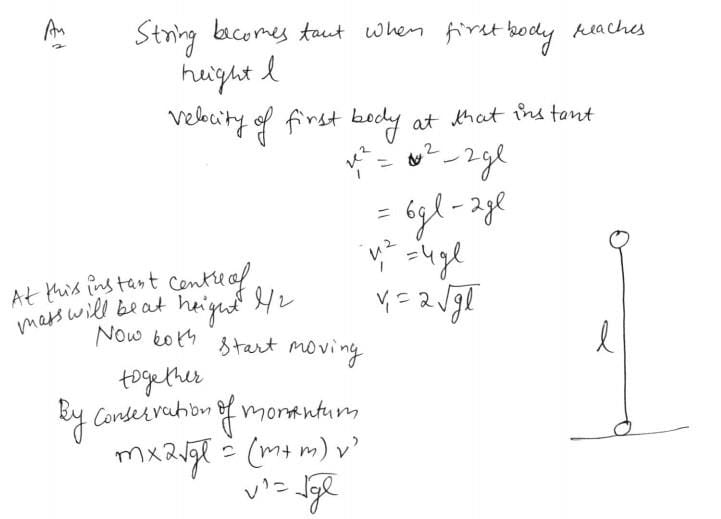 Ans String becomes taut when first body reaches
height l
velocity of first body at that instant
v₁² = u² - 2gl
= 6gl - 2gl
v₁² = 4gl
v₁ = 2√gl
At this instant centre of
mass will be at height l/2
Now both start moving
together
By conservation of momentum
m×2√gl = (m+m) v'
v' = √gl
l